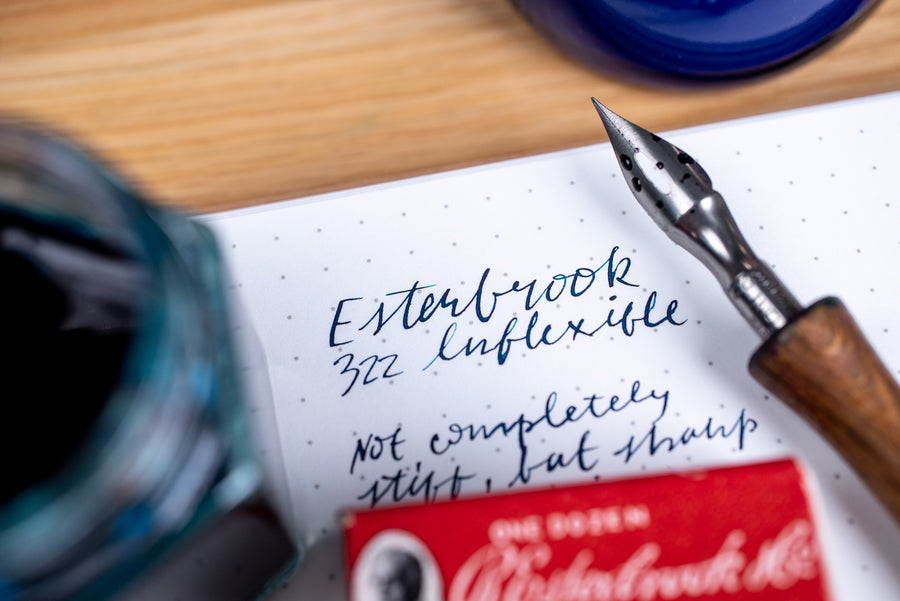 Esterbrook
322 Inflexible
Not completely
stiff, but sharp
ONE DOZEN
Esterbrook &